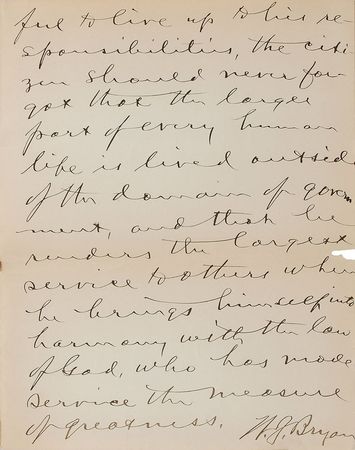 ful to live up to his re
sponsibilities, the citi
zen should never for
get that the larger
part of every human
life is lived outside
of the domain of govern
ment, and that he
renders the largest
service to others when
he brings himself into
harmony with the law
of God, who has made
service the measure
of greatness. W. J. Bryan